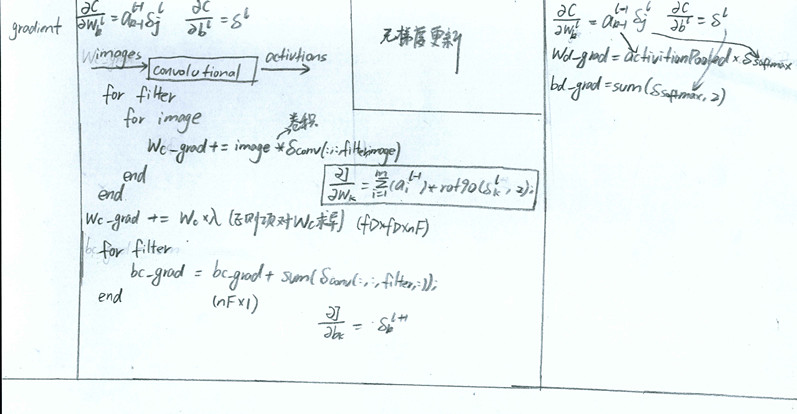 gradient
∂C/∂w_b^l = a_{k-1}^{l-1} δ_j^l  ∂C/∂b^l = δ^l
images convolutional activtions
for filter
for image
卷积
Wc_grad += image * δconv(:,:,filter,image)
end
end
∂J/∂W_k = Σ_{i=1}^m (a_i^{l-1}) * rot90(δ_k^l, 2);
Wc_grad += Wc×λ (正则项对Wc求导) (fD×fD×nF)
for filter
bc_grad = bc_grad + sum(δconv(:,:,filter,:));
end
(nF×1)
∂J/∂b_k = δ_k^{l+1}
无梯度更新
∂C/∂w_b^l = a_{k-1}^{l-1} δ_j^l  ∂C/∂b^l = δ^l
Wd_grad = activitionPooled × δsoftmax
bd_grad = sum(δsoftmax, 2)